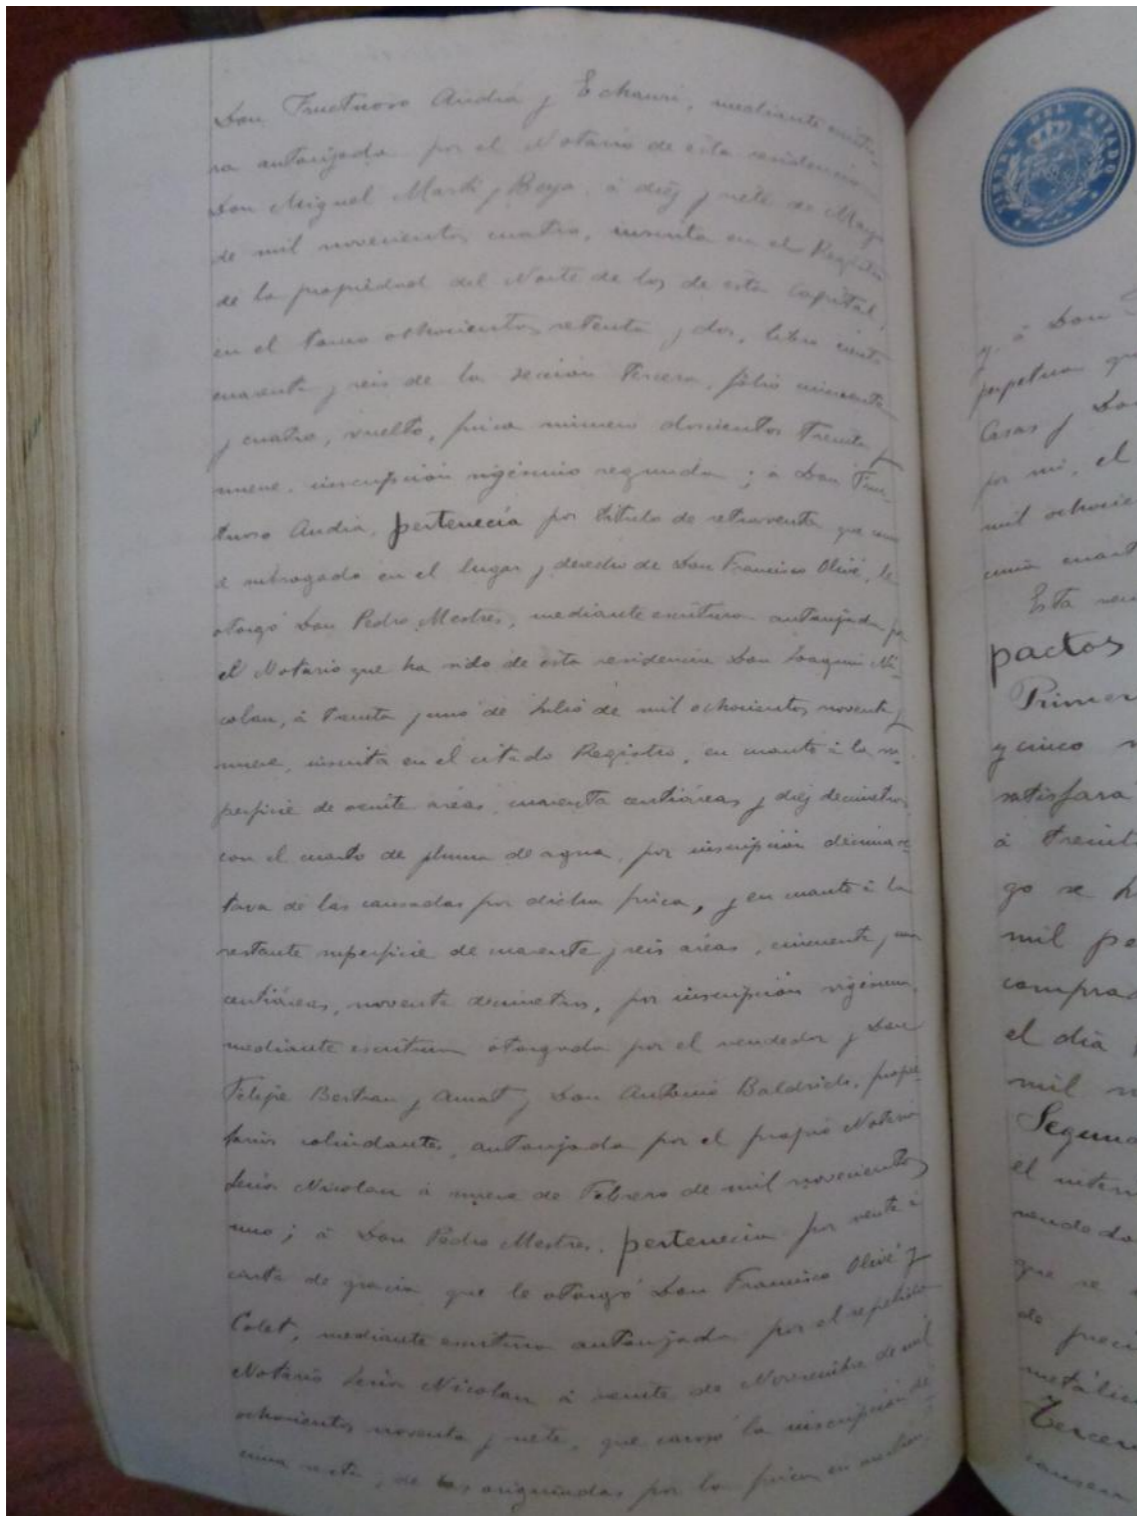 Don Fructuoso Andia y Echauri, mediante escritu-
ra autorizada por el Notario de esta residencia
Don Miguel Martí y Beya, á diez y siete de Mayo
de mil novecientos cuatro, inscrita en el Registro
de la propiedad del Norte de los de esta Capital,
en el tomo ochocientos setenta y dos, libro ciento
cuarenta y seis de la sección tercera, fólio cincuenta
y cuatro, vuelto, finca número doscientos treinta y
nueve, inscripción vigésimo segunda; á Don Fruc-
tuoso Andia, pertenecía por título de retroventa que como
á subrogado en el lugar y derecho de Don Francisco Olivé, le
otorgó Don Pedro Mestres, mediante escritura autorizada por
el Notario que ha sido de esta residencia Don Joaquin Ni-
colau, á treinta y uno de Julio de mil ochocientos noventa y
nueve, inscrita en el citado Registro, en cuanto á la su-
perficie de veinte áreas, cuarenta centiáreas y diez decímetros
con el cuarto de pluma de agua, por inscripción décima oc-
tava de las causadas por dicha finca, y en cuanto á la
restante superficie de cuarenta y seis áreas, cincuenta y una
centiáreas, noventa decímetros, por inscripción vigésima,
mediante escritura otorgada por el vendedor y Don
Felipe Bertran y Amat y Don Antonio Baldrich, propie-
tarios colindantes, autorizada por el propio Notario
Señor Nicolau á nueve de Febrero de mil novecientos
uno; á Don Pedro Mestres, pertenecia por venta á
carta de gracia que le otorgó Don Francisco Olivé y
Colet, mediante escritura autorizada por el repetido
Notario Señor Nicolau á veinte de Noviembre de mil
ochocientos noventa y siete, que causó la inscripción dé-
cima sexta, de las originadas por la finca en
y á Don
perpetua que
Casas y Don
por mi, el
mil ochocie
cuart
Esta ven
pactos
Primer
y cinco
satisfará
á treint
go se h
mil pe
comprad
el dia
mil n
Segund
el inter
vendedo
que se
de preci
metálic
Tercer
causen